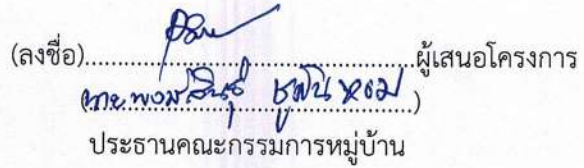 (ลงชื่อ)......................................................ผู้เสนอโครงการ
(นาย พงษ์สินธุ์ .....................)
ประธานคณะกรรมการหมู่บ้าน